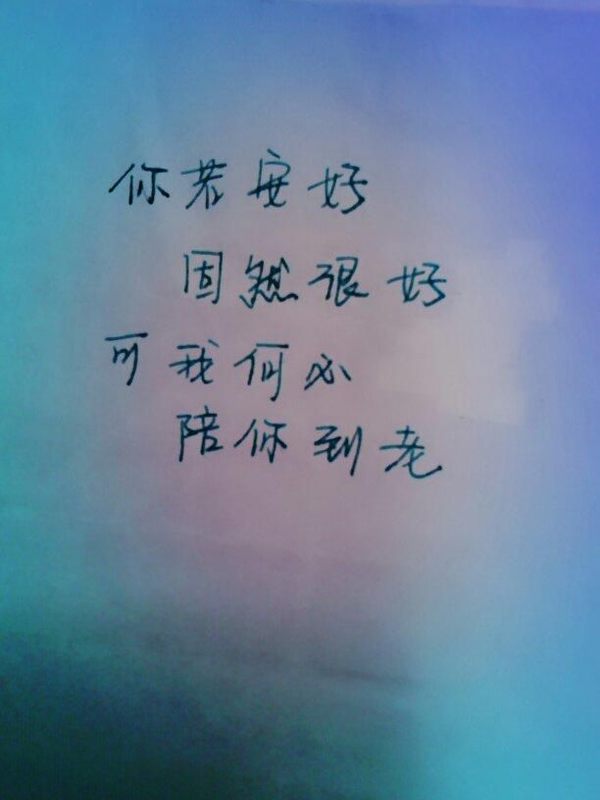 你若安好
固然很好
可我何必
陪你到老